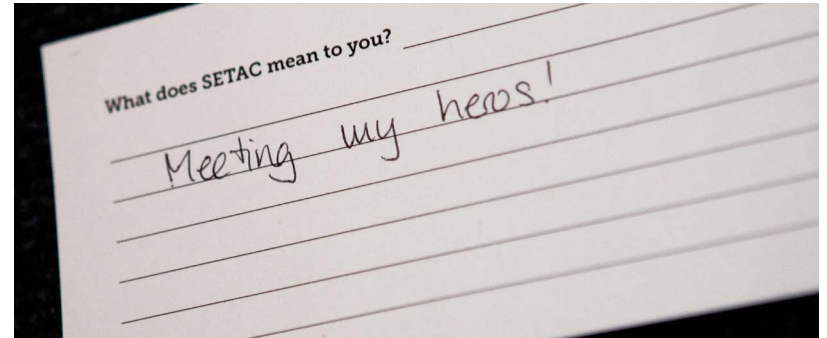 What does SETAC mean to you?
Meeting my heros!